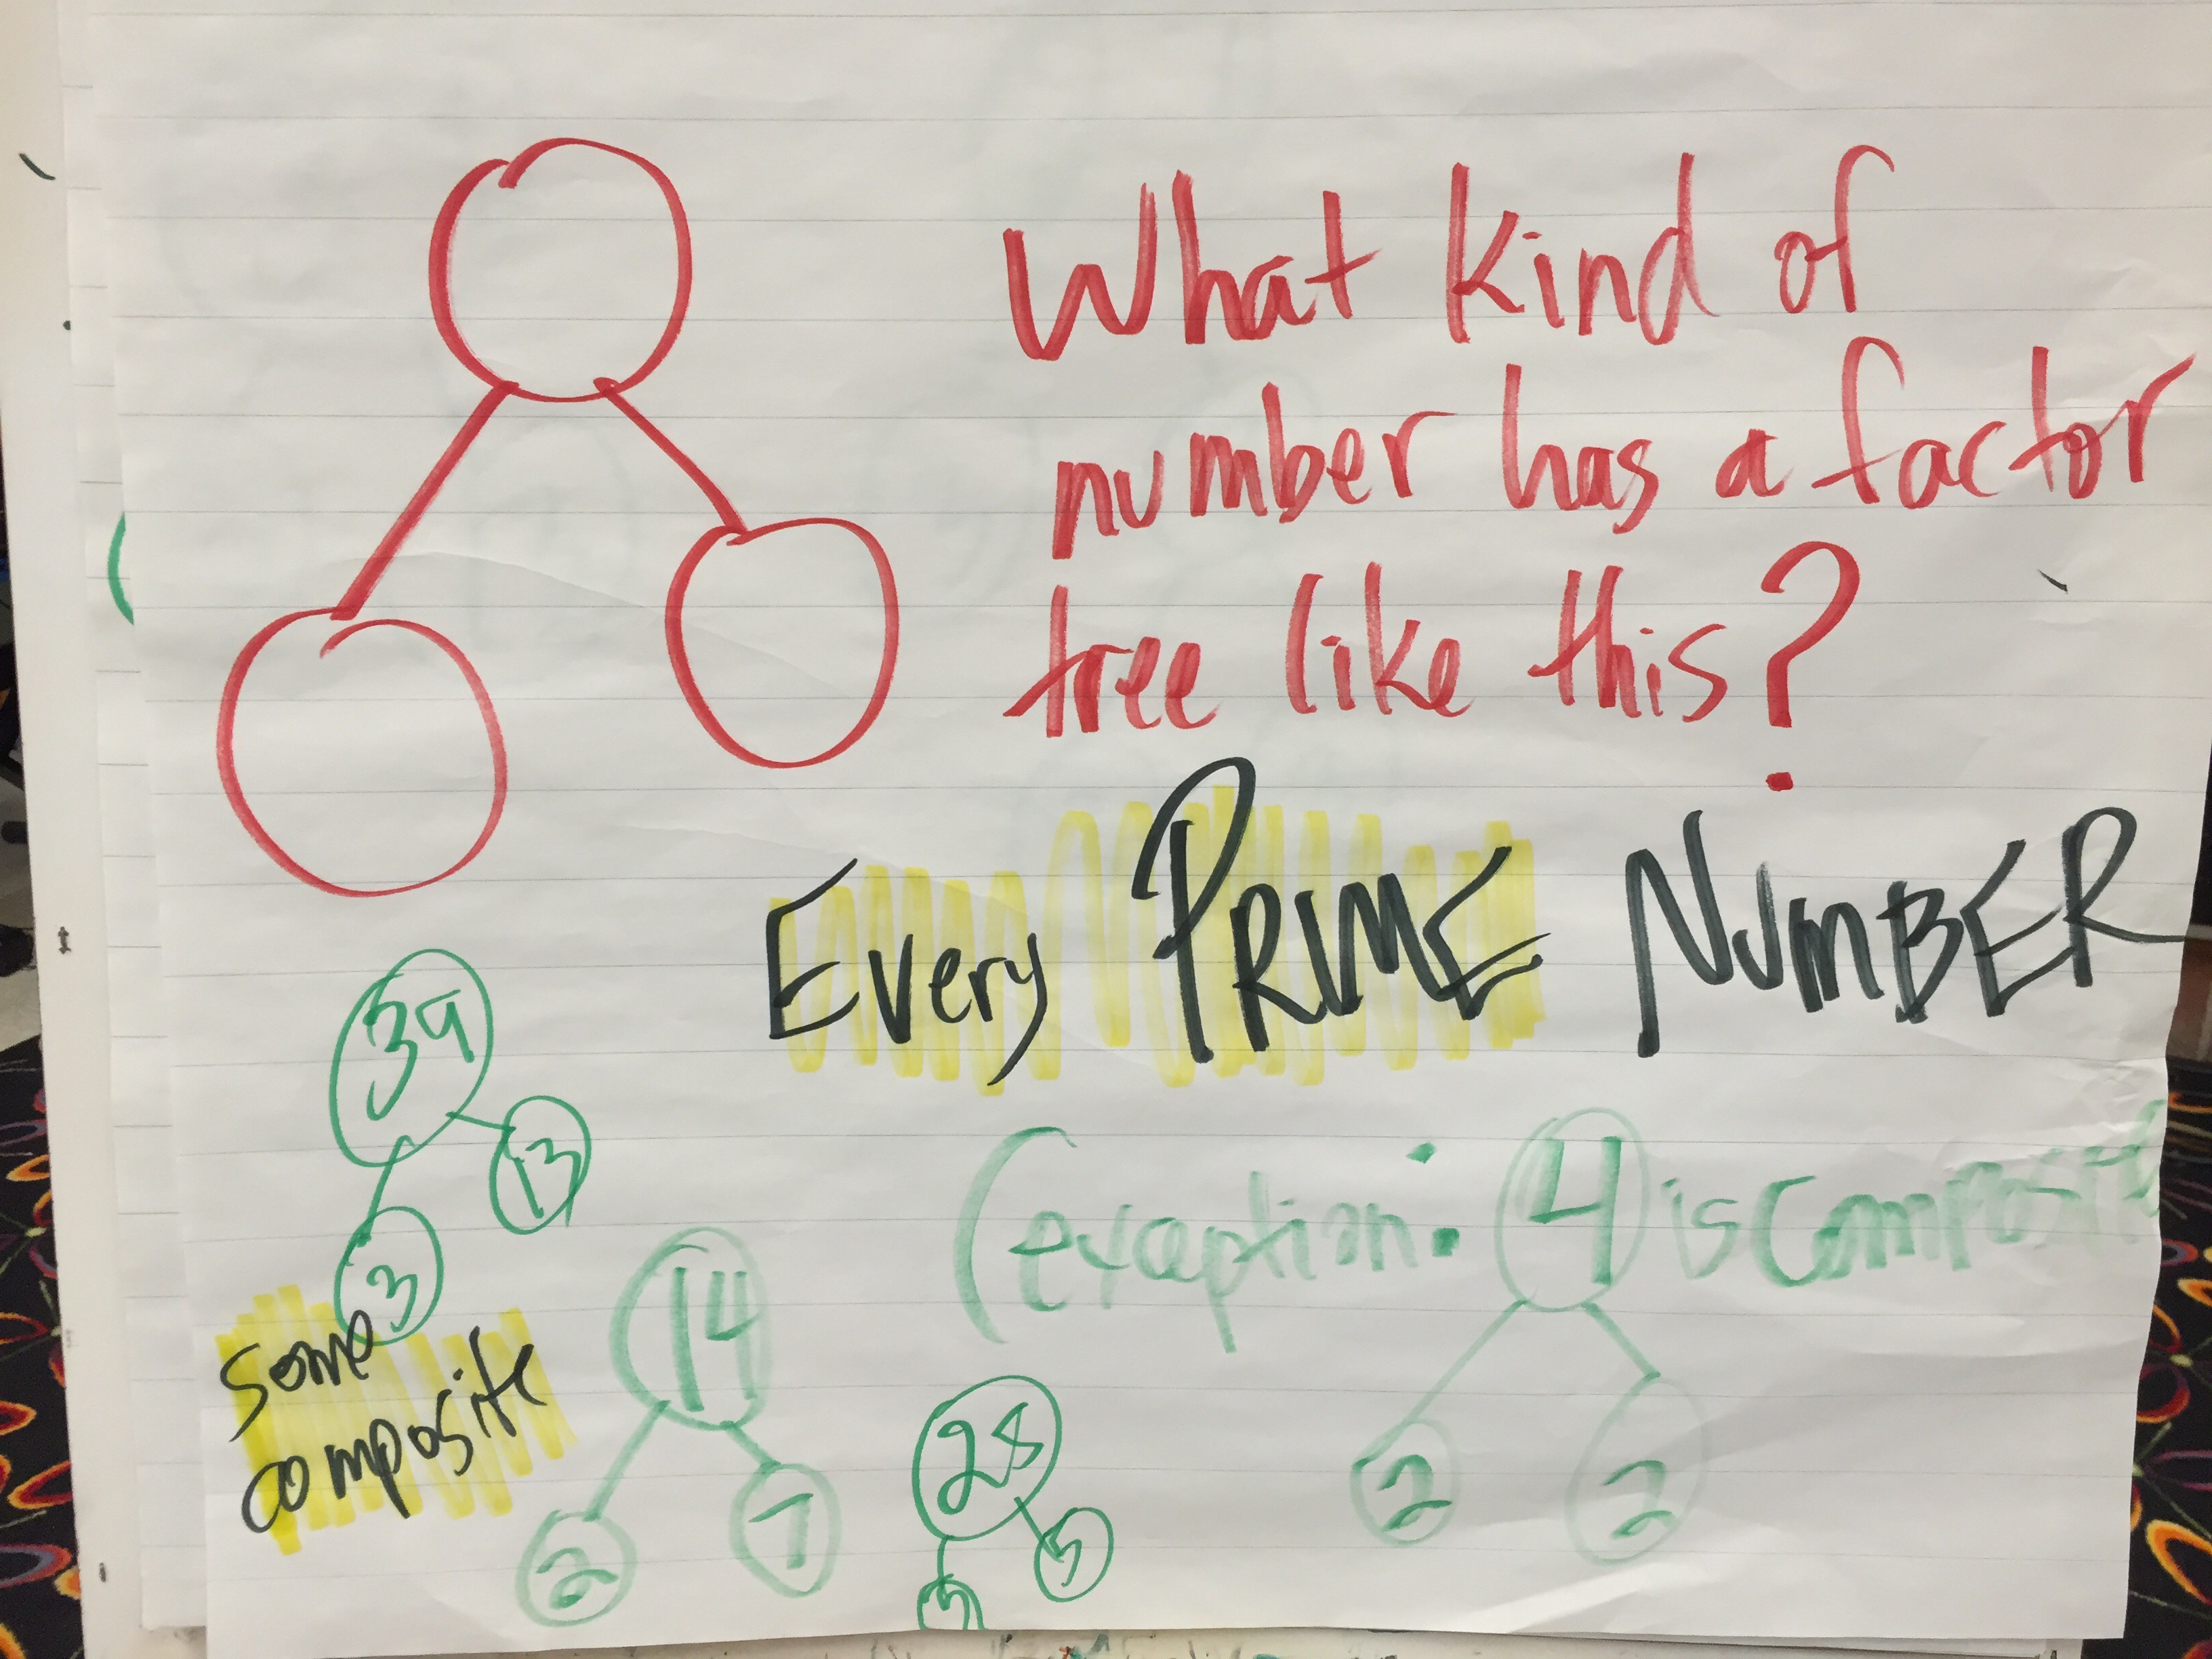 What kind of
number has a factor
tree like this?
Every PRIME NUMBER
39
13
3
(exception: 4 is composite
2 2
some
composite
14
2 7
25
5
5